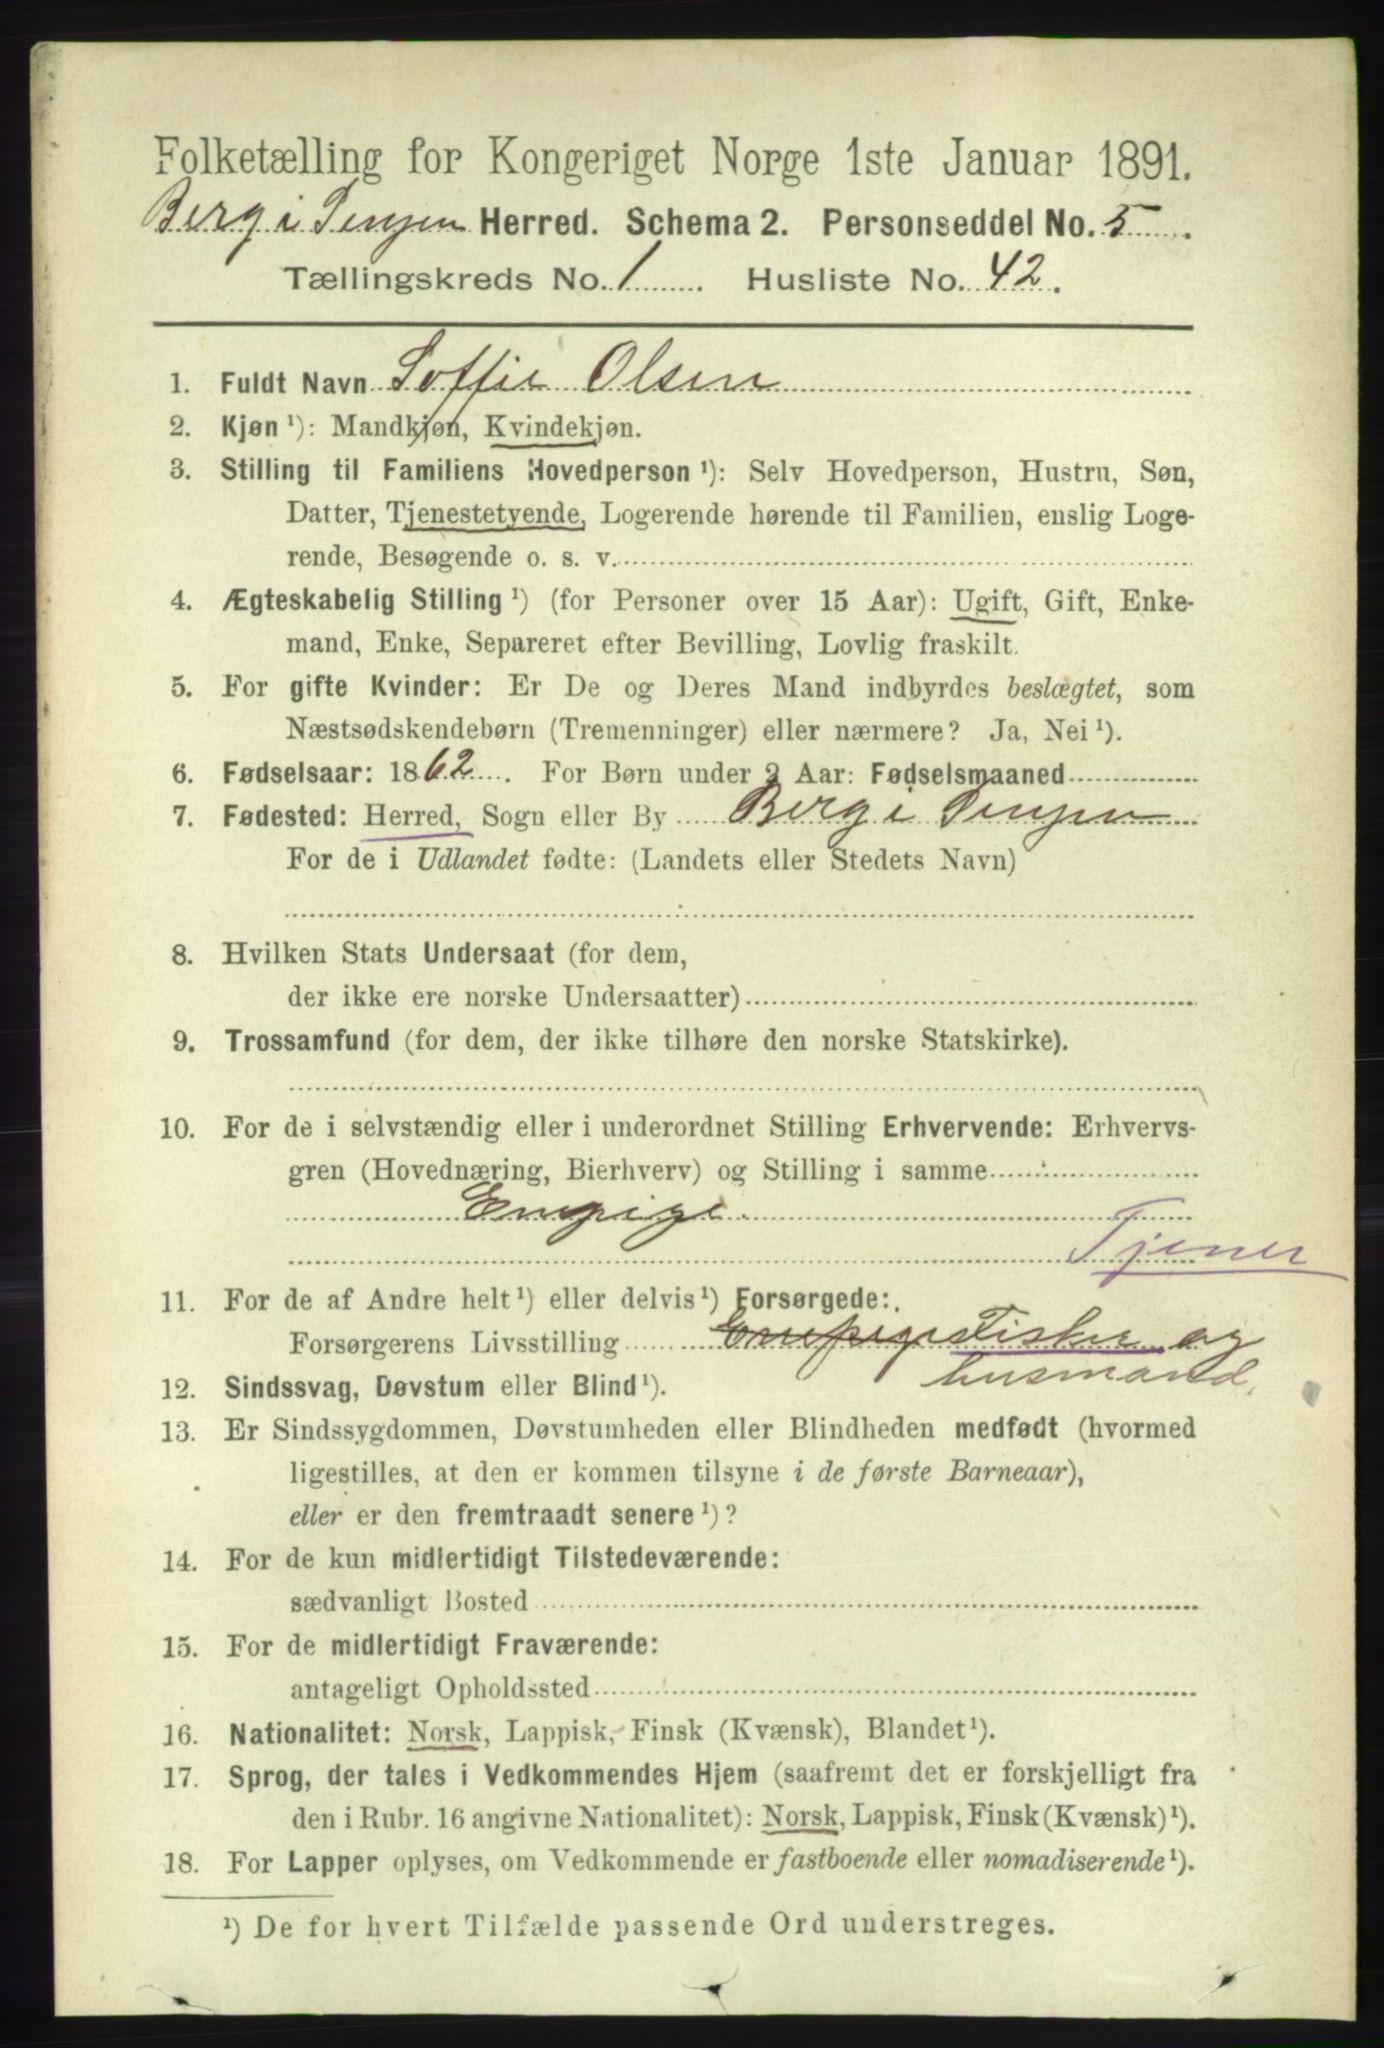 Folketælling for Kongeriget Norge 1ste Januar 1891.
Berg i Senjen Herred. Schema 2. Personseddel No. 5
Tællingskreds No. 1 Husliste No. 42.
1. Fuldt Navn Soffie Olsen
2. Kjøn ¹): Mandkjøn, Kvindekjøn.
3. Stilling til Familiens Hovedperson ¹): Selv Hovedperson, Hustru, Søn,
Datter, Tjenestetyende, Logerende hørende til Familien, enslig Loge-
rende, Besøgende o. s. v.
4. Ægteskabelig Stilling ¹) (for Personer over 15 Aar): Ugift, Gift, Enke-
mand, Enke, Separeret efter Bevilling, Lovlig fraskilt.
5. For gifte Kvinder: Er De og Deres Mand indbyrdes beslægtet, som
Næstsødskendebørn (Tremenninger) eller nærmere? Ja, Nei ¹).
6. Fødselsaar: 1862. For Børn under 2 Aar: Fødselsmaaned
7. Fødested: Herred, Sogn eller By Berg i Senjen
For de i Udlandet fødte: (Landets eller Stedets Navn)
8. Hvilken Stats Undersaat (for dem,
der ikke ere norske Undersaatter)
9. Trossamfund (for dem, der ikke tilhøre den norske Statskirke).
10. For de i selvstændig eller i underordnet Stilling Erhvervende: Erhvervs-
gren (Hovednæring, Bierhverv) og Stilling i samme
Empige.
Tjener
11. For de af Andre helt ¹) eller delvis ¹) Forsørgede:
Forsørgerens Livsstilling Empige Fisker og
husmand.
12. Sindssvag, Døvstum eller Blind ¹).
13. Er Sindssygdommen, Døvstumheden eller Blindheden medfødt (hvormed
ligestilles, at den er kommen tilsyne i de første Barneaar),
eller er den fremtraadt senere ¹)?
14. For de kun midlertidigt Tilstedeværende:
sædvanligt Bosted
15. For de midlertidigt Fraværende:
antageligt Opholdssted
16. Nationalitet: Norsk, Lappisk, Finsk (Kvænsk), Blandet ¹).
17. Sprog, der tales i Vedkommendes Hjem (saafremt det er forskjelligt fra
den i Rubr. 16 angivne Nationalitet): Norsk, Lappisk, Finsk (Kvænsk) ¹).
18. For Lapper oplyses, om Vedkommende er fastboende eller nomadiserende ¹).
¹) De for hvert Tilfælde passende Ord understreges.